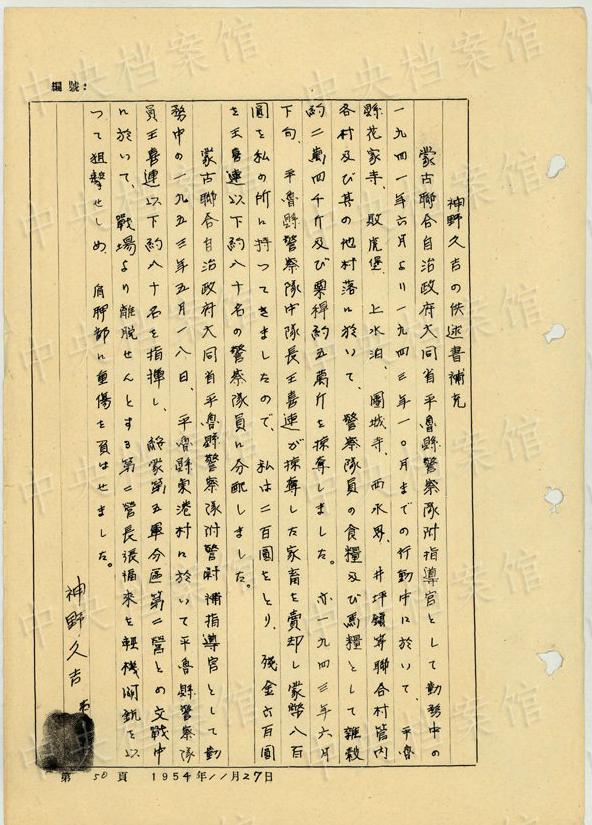 編號:
神野久吉の供述書補充
蒙古聯合自治政府大同省平魯縣警察隊附指導官として勤務中の
一九四一年六月より一九四三年一〇月までの行動中に於いて、平魯
縣花家寺、敗虎堡、上水泊、圍城寺、西水界、井坪鎮等聯合村管內
各村及び其の他村落に於いて、警察隊員の食糧及び馬糧として雜穀
約二萬四千斤及び粟稈約五萬斤を掠奪しました。亦一九四三年六月
下旬、平魯縣警察隊中隊長王喜連が掠奪した家畜を賣却し蒙幣八百
圓を私の所に持つてきましたので、私は二百圓をとり、殘金六百圓
を王喜連以下約八十名の警察隊員に分配しました。
蒙古聯合自治政府大同省平魯縣警察隊附警尉補指導官として勤
務中の一九五三年五月一八日、平魯縣東港村に於いて平魯縣警察隊
員王喜連以下約八十名を指揮し、綏蒙第五軍分區第二營との交戰中
に於いて、戰場より離脫せんとする第二營長張福來を輕機関銃を以
つて狙擊せしめ、肩胛部に重傷を負はせました。
神野久吉
第50頁 1954年11月27日
中央档案馆